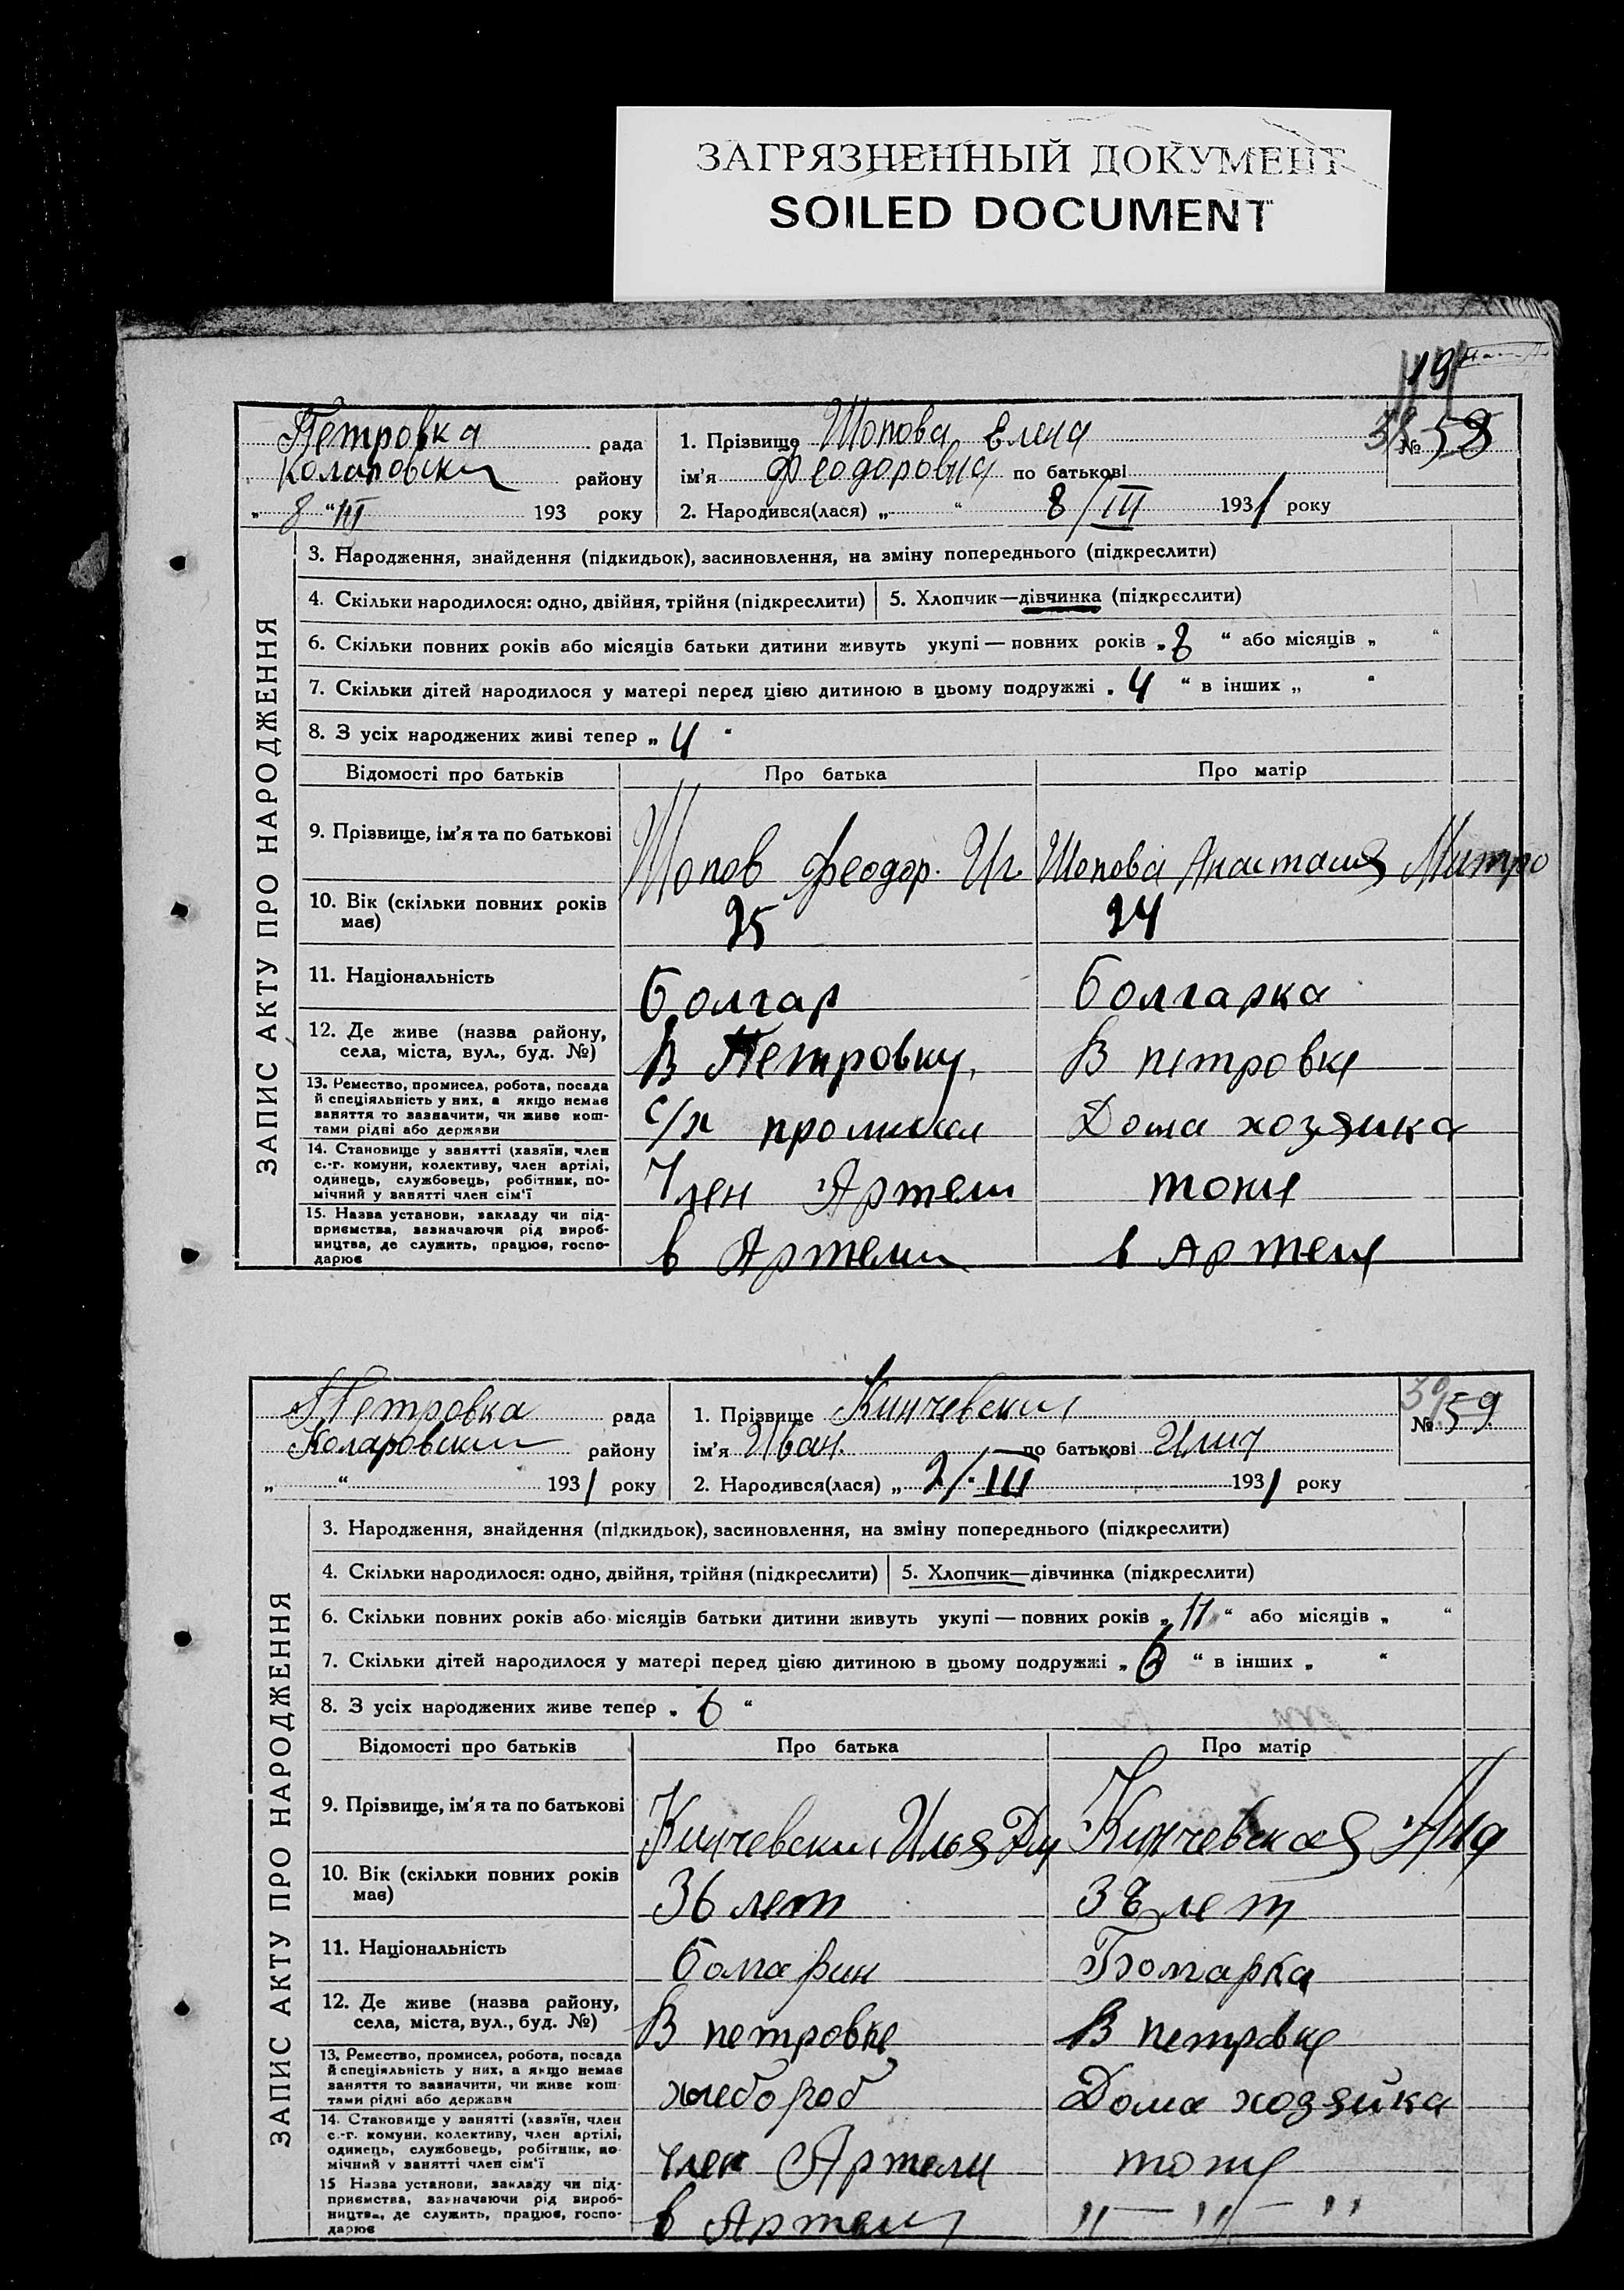 ЗАГРЯЗНЕННЫЙ ДОКУМЕНТ
SOILED DOCUMENT
19
Петровка рада
Коларовски району
„ 8 “ III 193 року
1. Прізвище Шопова Елена
ім’я Феодоровна по батькові
2. Народився(лася) „ “ 8/III 1931 року
38 № 58
ЗАПИС АКТУ ПРО НАРОДЖЕННЯ
3. Народження, знайдення (підкидьок), засиновлення, на зміну попереднього (підкреслити)
4. Скільки народилося: одно, двійня, трійня (підкреслити) 5. Хлопчик—дівчинка (підкреслити)
6. Скільки повних років або місяців батьки дитини живуть укупі — повних років „ 8 “ або місяців „ “
7. Скільки дітей народилося у матері перед цією дитиною в цьому подружжі „ 4 “ в інших „ “
8. З усіх народжених живі тепер „ 4 “
Відомості про батьків Про батька Про матір
9. Прізвище, ім’я та по батькові
Шопов Феодор. Иг. Шопова Анастасия Митро
10. Вік (скільки повних років
має)
25 24
11. Національність
болгар болгарка
12. Де живе (назва району,
села, міста, вул., буд. №)
В Петровки В петровке
13. Ремество, промисел, робота, посада
й спеціяльність у них, а якщо немає
заняття то зазначити, чи живе кош-
тами рідні або держави
с/х промисел Дома хозяика
14. Становище у занятті (хазяїн, член
с.-г. комуни, колективу, член артілі,
одинець, службовець, робітник, по-
мічний у занятті член сім’ї
Член Артели тоже
15. Назва установи, закладу чи під-
приємства, зазначаючи рід вироб-
ництва, де служить, працює, госпо-
дарює
в Артели в Артели
Петровка рада
Коларовски району
„ “ 1931 року
1. Прізвище Кинчевски
ім’я Иван. по батькові Илич
2. Народився(лася) „ 2/III 1931 року
39 № 59
ЗАПИС АКТУ ПРО НАРОДЖЕННЯ
3. Народження, знайдення (підкидьок), засиновлення, на зміну попереднього (підкреслити)
4. Скільки народилося: одно, двійня, трійня (підкреслити) 5. Хлопчик—дівчинка (підкреслити)
6. Скільки повних років або місяців батьки дитини живуть укупі — повних років „ 11 “ або місяців „ “
7. Скільки дітей народилося у матері перед цією дитиною в цьому подружжі „ 6 “ в інших „ “
8. З усіх народжених живе тепер „ 6 “
Відомості про батьків Про батька Про матір
9. Прізвище, ім’я та по батькові
Кинчевски Илья Кинчевская
10. Вік (скільки повних років
має)
36 лет лет
11. Національність
болгарин Болгарка
12. Де живе (назва району,
села, міста, вул., буд. №)
В петровке В петровке
13. Ремество, промисел, робота, посада
й спеціяльність у них, а якщо немає
заняття то зазначити, чи живе кош-
тами рідні або держави
хлебороб Дома хозяйка
14. Становище у занятті (хазяїн, член
с.-г. комуни, колективу, член артілі,
одинець, службовець, робітник, по-
мічний у занятті член сім’ї
член Артели тоже
15 Назва установи, закладу чи під-
приємства, зазначаючи рід вироб-
ництва, де служить, працює, госпо-
дарює
в Артели „ — „ — „